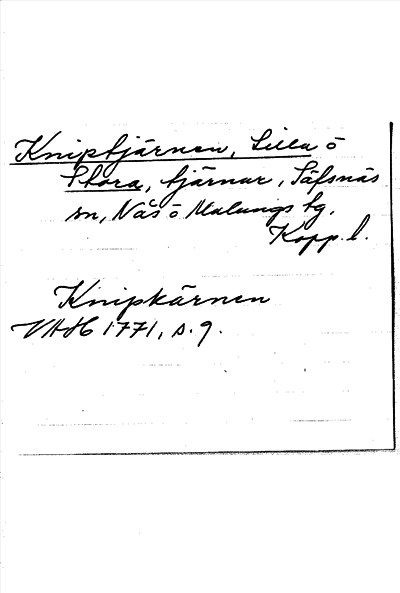 Kniptjärnen, Lilla o
Stora, tjärnar, Säfsnäs
sn, Nås o Malungs tg.
Kopp. l.
Knipkärnen
VAH 1771, s. 9.